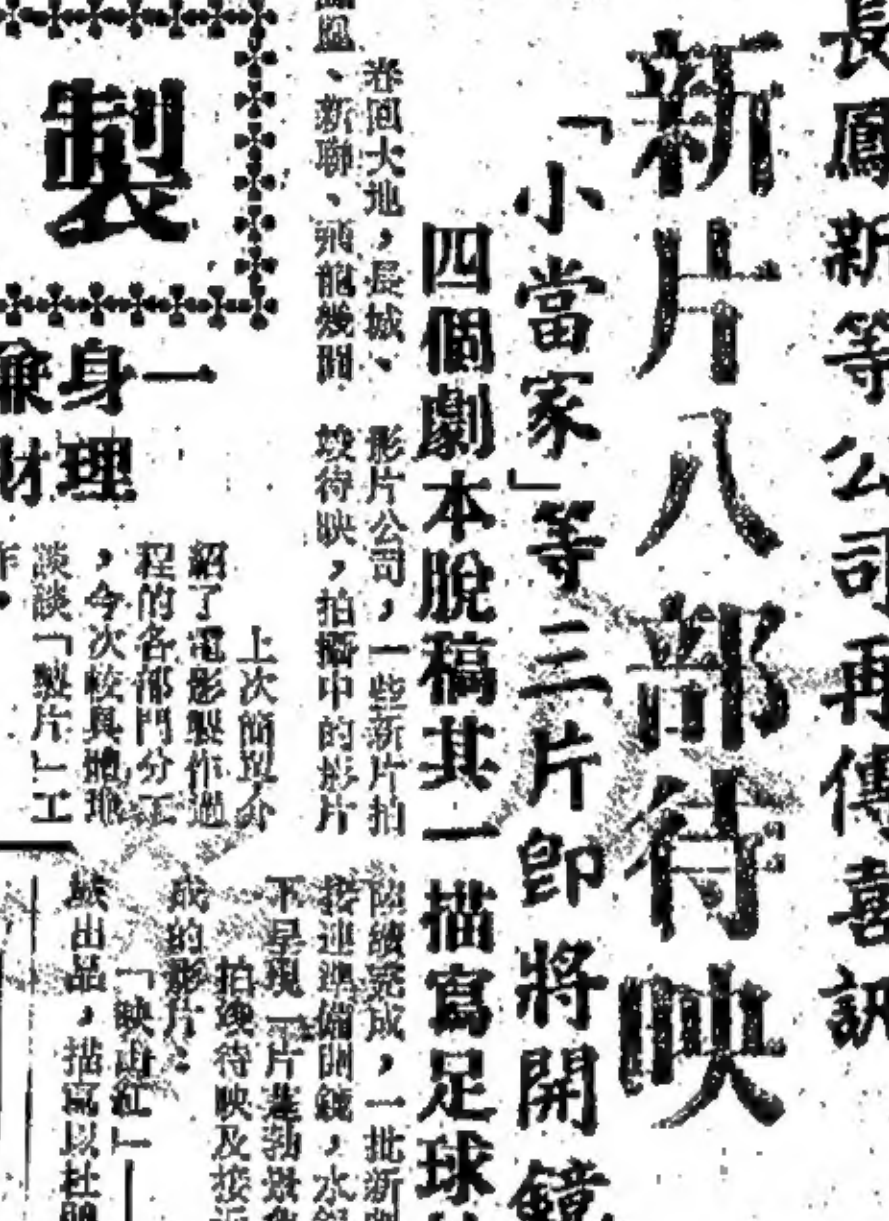 長鳳新等公司再傳喜訊
新片八部待映
「小當家」等三片即將開鏡
四個劇本脫稿其一描寫足球
春回大地，長城、
鳳凰、新聯、飛龍幾間
影片公司，一些新片拍
竣待映，拍攝中的影片
陸續完成，一批新
接連準備開鏡，水銀
下呈現一片蓬勃景象
拍竣待映及接近
成的影片：
「映山紅」——
城出品，描寫以杜鵑
製
一身兼
理財
上次簡單介
紹了電影製作過
程的各部門分工
，今次較具體地
談談「製片」工
作。